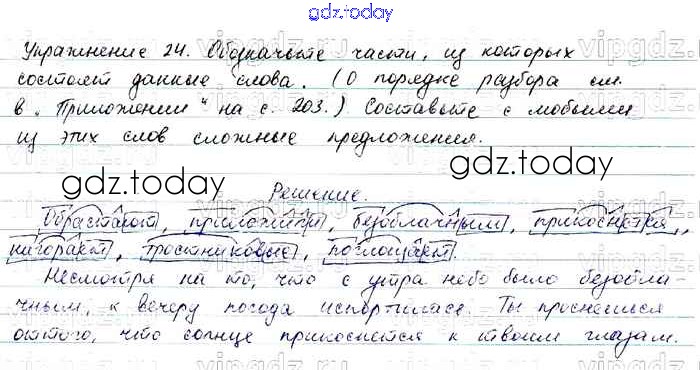 gdz.today
Упражнение 24. Обозначьте части, из которых
состоят данные слова. (О порядке разбора см.
в „Приложении“ на с. 203.) Составьте с любыми
из этих слов сложные предложения.
gdz.today
gdz.today
Решение.
Обрастают, приложили, безоблачным, прикоснется,
нагорают, тростниковые, поглощает.
Несмотря на то, что с утра небо было безобла-
чным, к вечеру погода испортилась. Ты проснешься
оттого, что солнце прикоснется к твоим глазам.